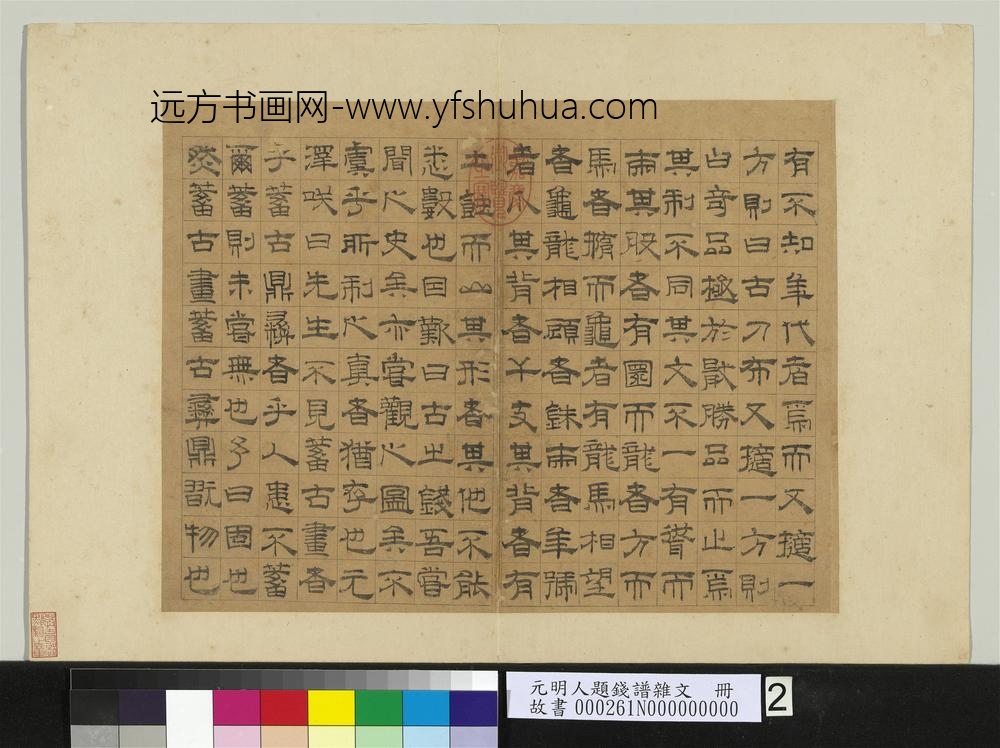 远方书画网-www.yfshuhua.com
有不知年代者焉而又擿一
方則曰古刀布又擿一方則
曰奇品極於厭勝品而止焉
其利不同其文不一有
而其
者有圜而龍者方而
馬者
而龜者有龍馬相望
者龜龍相顧者銖
者年號
者
其背者千支其背者有
土
而
其形者其他不能
悉數也曰
曰古之錢吾嘗
聞之史矣亦嘗觀之圖矣不
虞乎
之真者猶存也元
澤咲曰先生不見蓄古畫者
乎蓄古鼎彝者乎人患不蓄
爾蓄則未嘗無也予曰固也
然蓄古畫蓄古彝鼎翫物也
元明人題錢譜雜文 冊
故書 000261N000000000
2